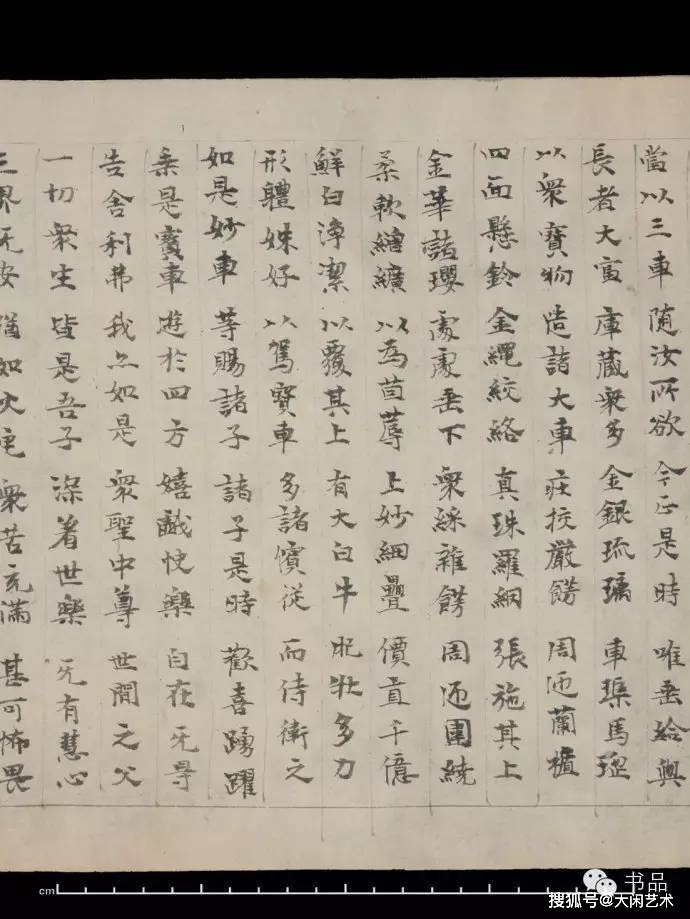 當以三車 隨汝所欲 今正是時 唯垂給與
長者大富 庫藏衆多 金銀琉璃 車璖馬瑙
以衆寶物 造諸大車 莊挍嚴飾 周迊蘭楯
四面懸鈴 金繩絞絡 真珠羅網 張施其上
金華諸瓔 處處垂下 衆綵雜飾 周迊圍繞
柔軟繒纊 以為茵蓐 上妙細疊 價直千億
鮮白淨潔 以覆其上 有大白牛 肥壯多力
形體姝好 以駕寶車 多諸儐從 而侍衛之
如是妙車 等賜諸子 諸子是時 歡喜踴躍
乘是寶車 遊於四方 嬉戲快樂 自在无㝵
告舍利弗 我亦如是 衆聖中尊 世間之父
一切衆生 皆是吾子 深著世樂 无有慧心
三界无安 猶如火宅 衆苦充滿 甚可怖畏
cm
书品
搜狐号@大闲艺术